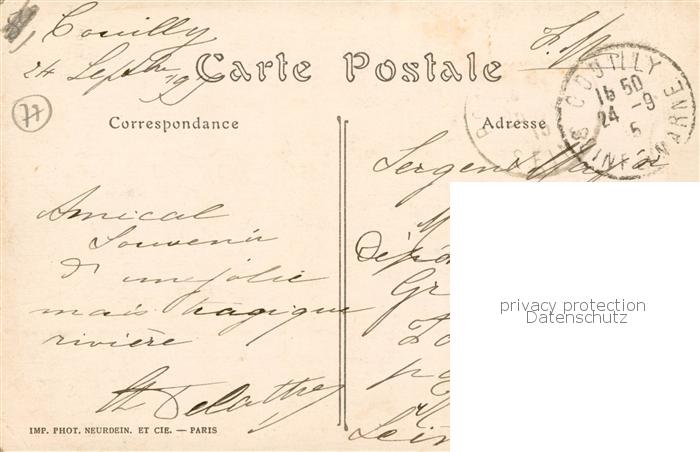 Couilly
24 Septbre 19
Carte Postale
F.M
COUILLY
16 50
24 -9
5
SEINE-ET-MARNE
77
Correspondance
Adresse
Sergent Major
Amical
Souvenir
d'une jolie
mais tragique
rivière
Delattre
M
Dépô
Gr
IMP. PHOT. NEURDEIN. ET CIE. — PARIS
Sein
privacy protection
Datenschutz